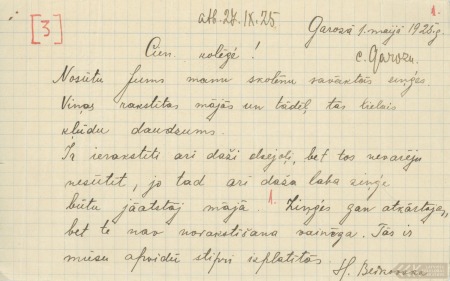 1.
[3]
atb. 27.IX.25.
Garozā 1. maijā 1925.g.
c. Garozu.
Cien. kolēģe!
Nosūtu Jums manu skolēnu savāktās ziņģes.
Viņas rakstītas mājās un tādēļ tās lielais
kļūdu daudzums.
Ir ierakstīti arī daži dzejoļi, bet tos nevarēju
nesūtīt, jo tad arī daža laba ziņģe
būtu jāatstāj mājā. 1. Ziņģes gan atkārtojas,
bet te nav norakstīšana vainīga. Tās ir
mūsu apvidū stipri izplatītas.
H.